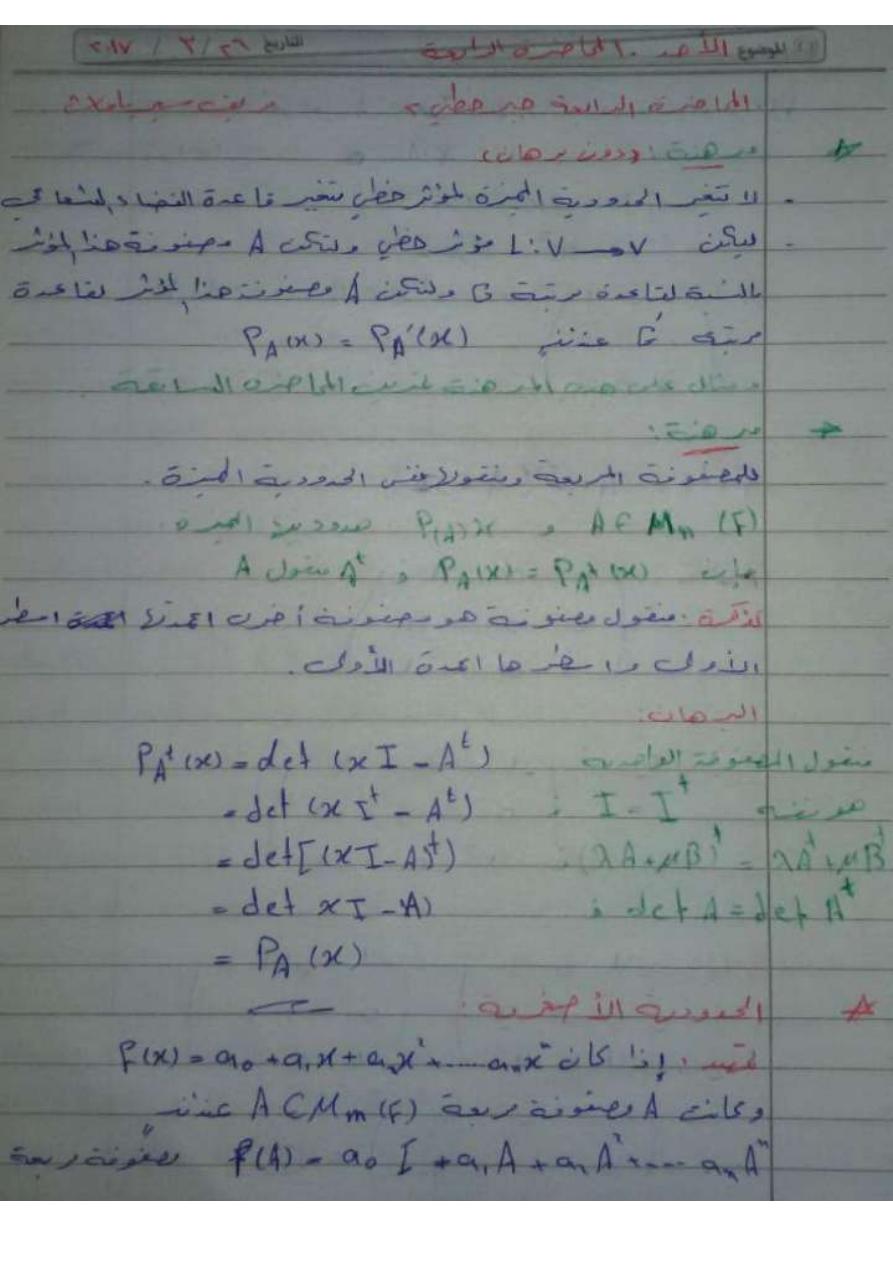 الموضوع الأحد المحاضرة الرابعة التاريخ ٢٦ / ٣ / ٢٠١٧
المحاضرة الرابعة جبر خطي ٢
مبرهنة: (دون برهان)
- لا تتغير الحدودية المميزة لمؤثر خطي بتغير قاعدة الفضاء الشعاعي
- ليكن L: V → V مؤثر خطي ولتكن A مصفونة هذا المؤثر
بالنسبة لقاعدة مرتبة G ولتكن A' مصفونة هذا المؤثر لقاعدة
مرتبة G' عندئذٍ P_A(x) = P_A'(x)
مثال على هذه المبرهنة تمرين المحاضرة السابقة
مبرهنة:
للمصفوفة المربعة ومنقولها نفس الحدودية المميزة.
A ∈ M_n (F) و P_(A)x حدودية المميزة
فإن P_A(x) = P_A^t(x) و A^t منقول A
تذكرة: منقول مصفونة هو مصفونة أخرى اعمدتها اسطر
الأولى واسطرها اعمدة الأولى.
البرهان:
P_A^t(x) = det (x I - A^t) منقول المصفوفة الواحدية
= det (x I^t - A^t) ; I = I^t هو نفسه
= det[(xI - A)^t) ; (λA + μB)^t = λA^t + μB^t
= det xI - A) ; det A = det A^t
= P_A (x)
الحدودية الأصغرية:
تمهيد: إذا كان f(x) = a₀ + a₁x + a₂x² + ..... aₙxⁿ
وكانت A مصفونة مربعة A ∈ M_m (F) عندئذٍ
f(A) = a₀ I + a₁ A + a₁ A² + .... aₙ Aⁿ مصفونة مربعة